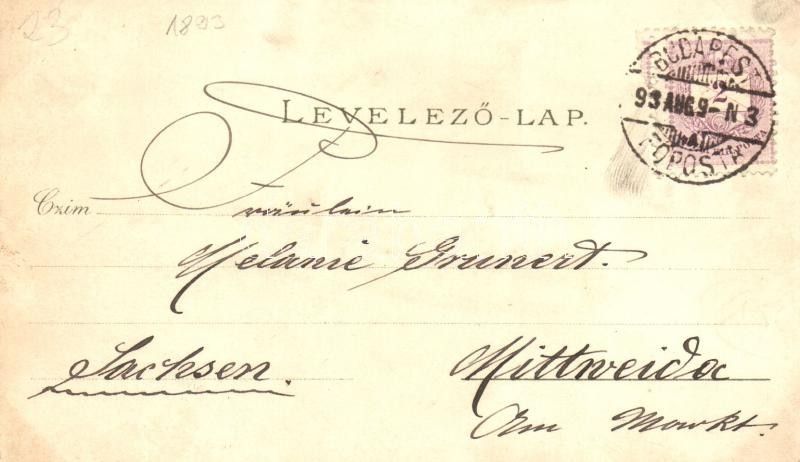 23 1893
BUDAPEST
2
93 AUG 9 - N 3
FŐPOSTA
LEVELEZŐ-LAP.
Czim Fräulein
Melanie Grunert.
Sachsen. Mittweida
Am Markt.